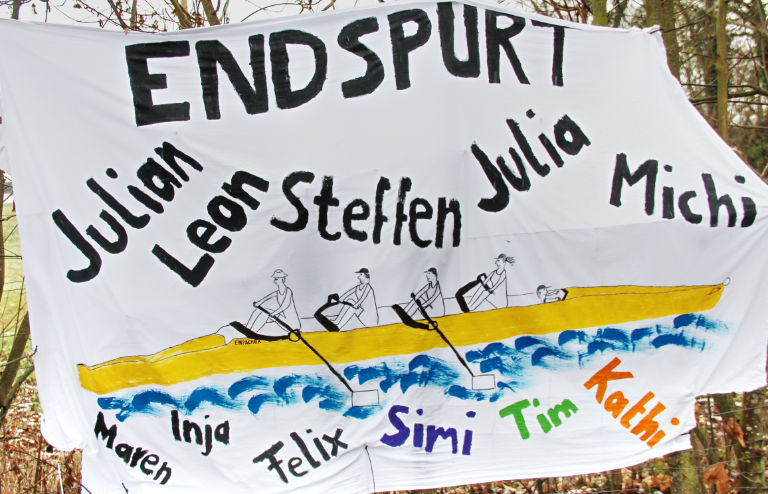 ENDSPURT
Julian
Leon
Steffen
Julia
Michi
EMPACHER
Maren
Inja
Felix
Simi
Tim
Kathi